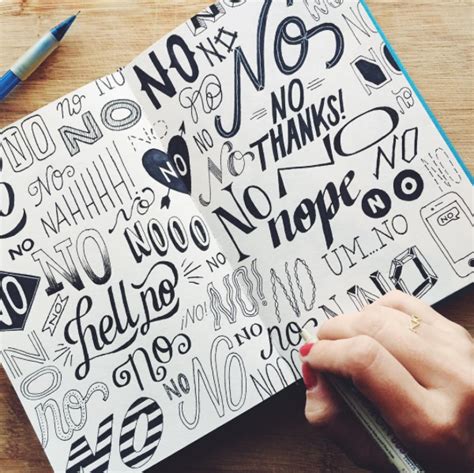 NO
NO
NO
NO
no
NO
NO
NO
NO
NO
THANKS!
No
NAHHHH!
NO
no
NO
No
NO
NO
nope
NO
NO
NO
NO
NOOO
UM...NO
NO
hell no
no
¡NO!
NO!
NO
NO
NO
no
NO
NO
No
NO
no
no
NO
NO